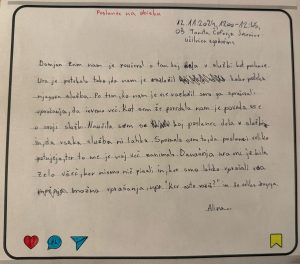 Poslanec na obisku
12.11.2024, 12:00-12:45,
OŠ Toneta Čufarja Jesenice
učilnica zgodovine
Domjan Zrim nam je razložil o tem, kaj dela v službi kot poslanec.
Ura je potekala tako, da nam je razložil kako poteka
njegova služba. Po tem, ko nam je vse razložil smo ga spraševali
vprašanja, da izvemo več. Kot sem že povedala nam je povedal vse
o svoji službi. Naučila sem se kaj poslanec dela v službi
in, da vsaka služba ni lahka. Spoznala sem to, da poslanci veliko
potujejo, ter to me je najbolj zanimalo. Današnja ura mi je bila
zelo všeč, ker nismo nič pisali in, ker smo lahko vprašali vsa
možna vprašanja, npr. "Ker ste rdeči?" in še veliko drugega.
Alina